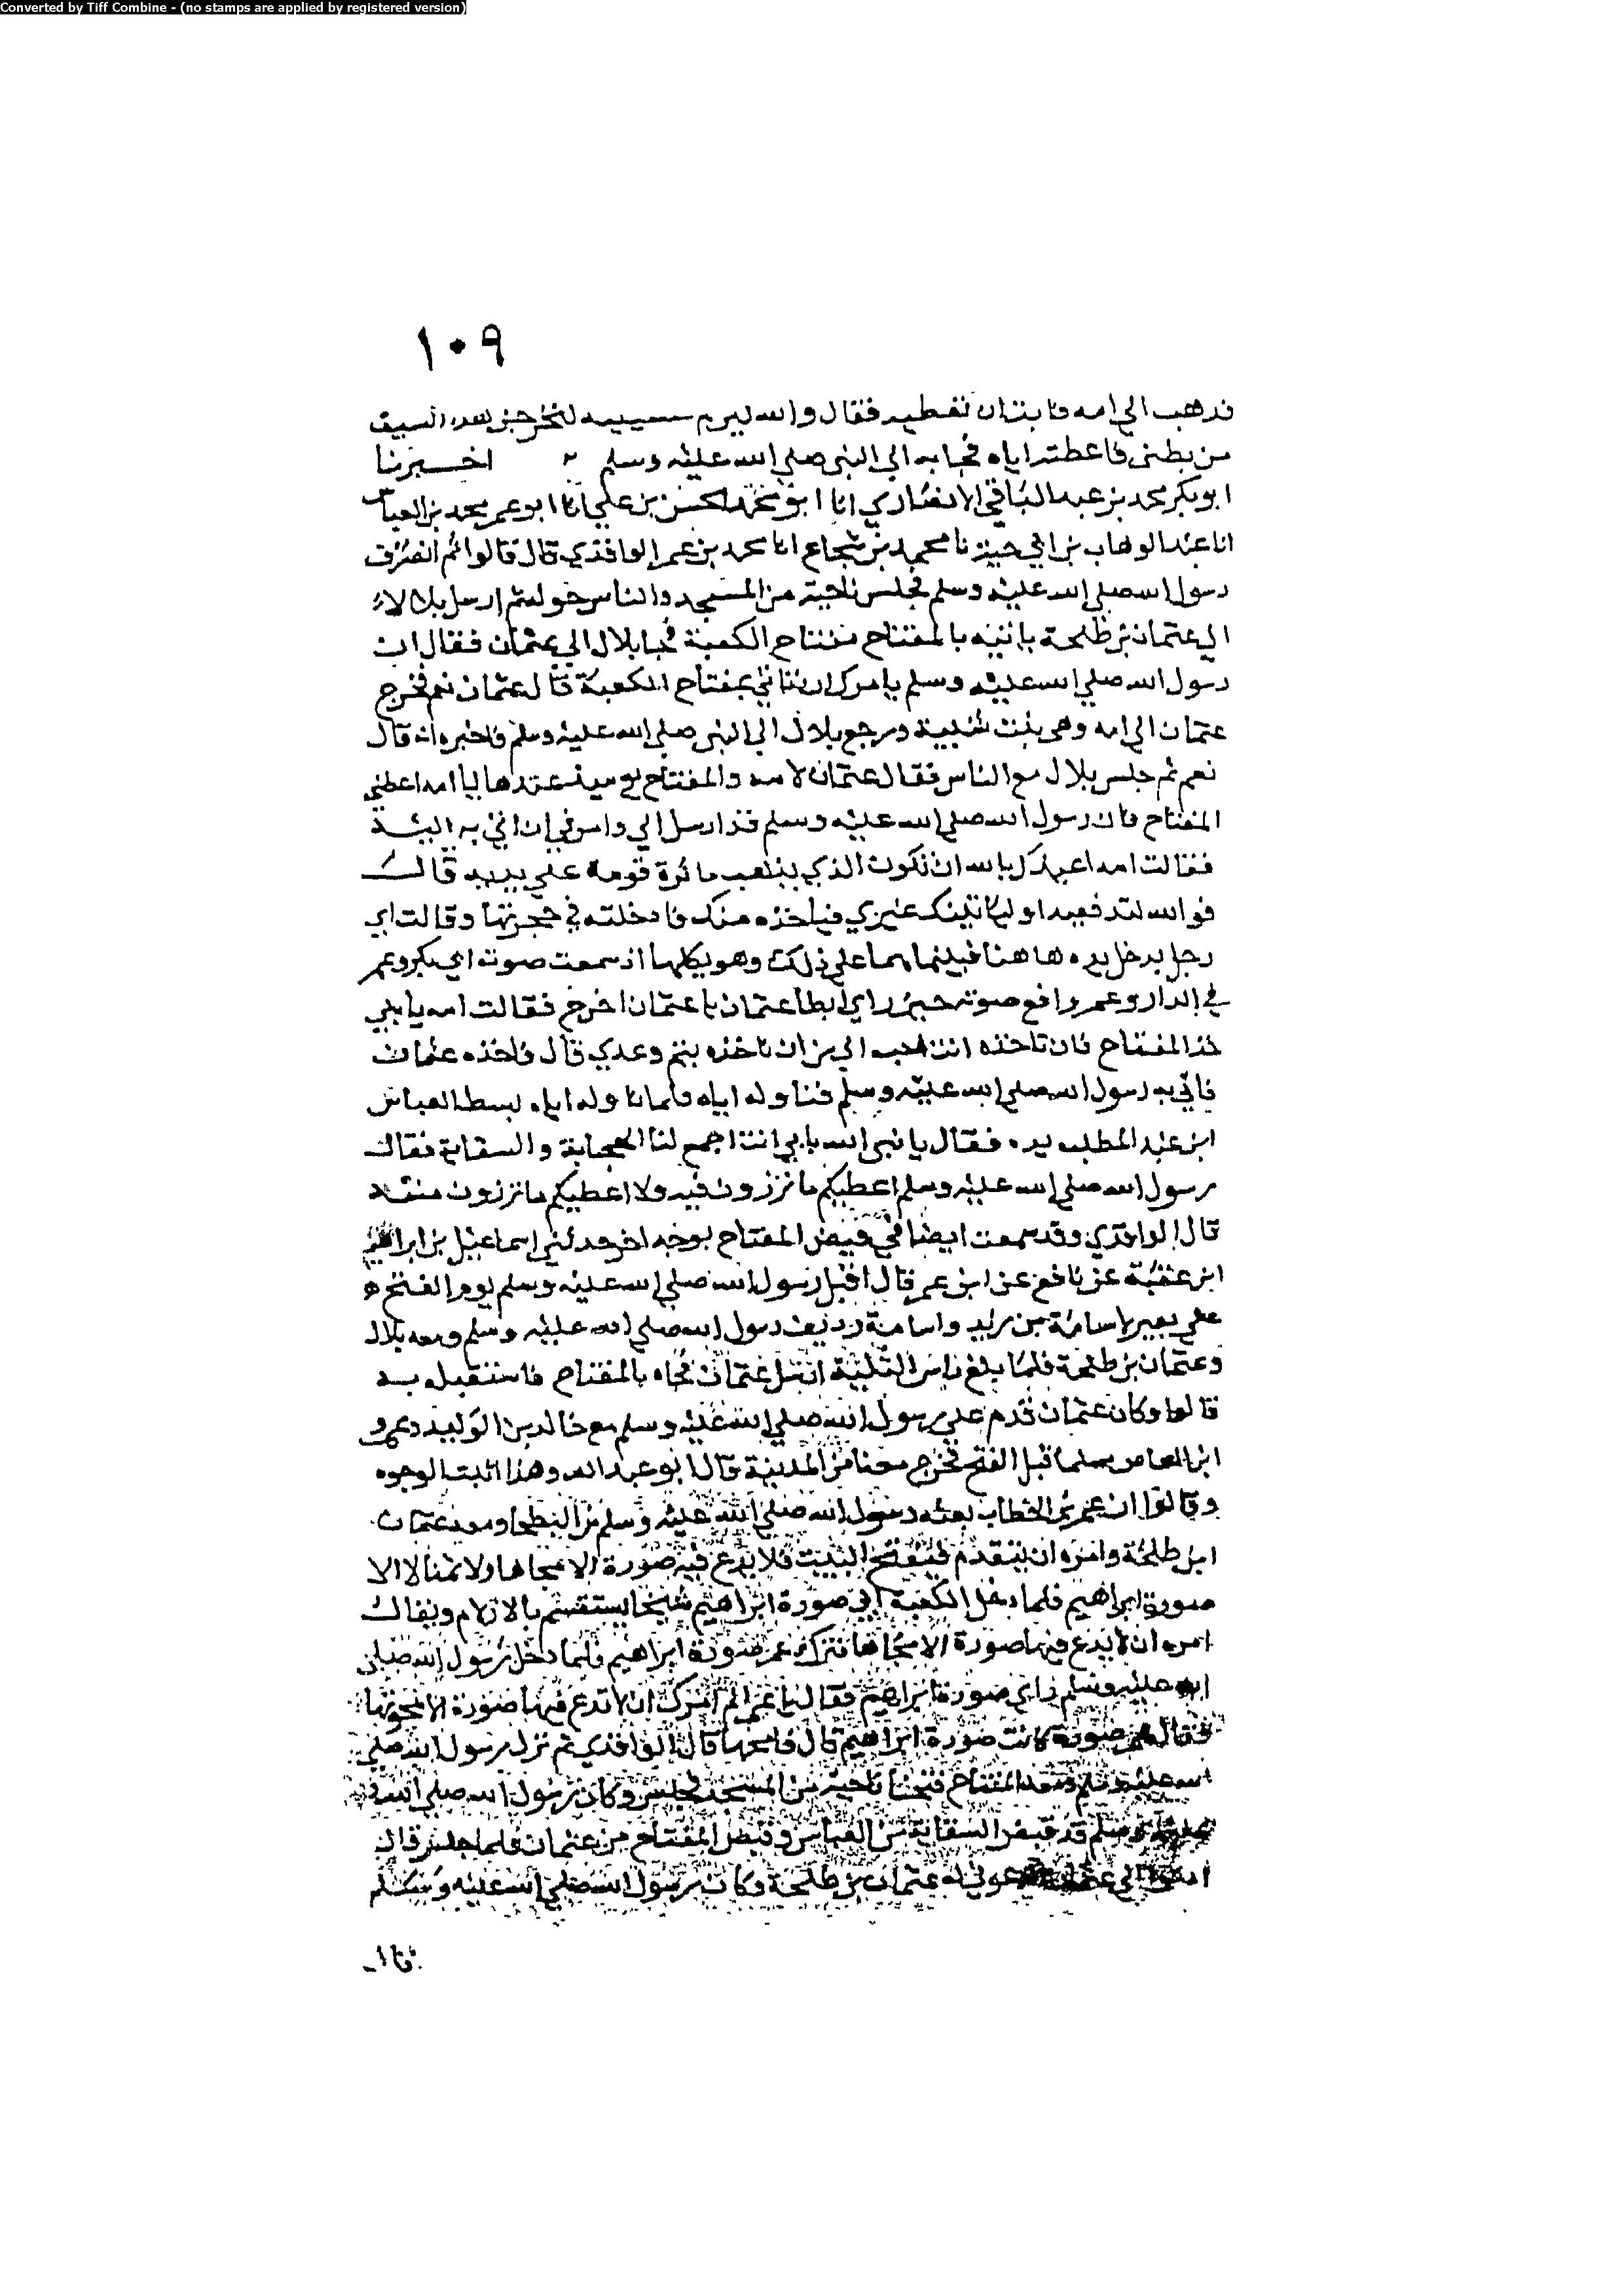 Converted by Tiff Combine - (no stamps are applied by registered version)
١٠٩
فذهب الي امه فابت ان تعطيه فقال والله ليخرجن هذا السيف
من بطني فاعطته اياه فجا به الي النبي صلي الله عليه وسلم اخبرنا
ابو بكر محمد بن عبد الباقي الانصاري انا ابو محمد الحسن بن علي انا ابو عمر محمد بن العباس
انا عبد الوهاب بن ابي حية نا محمد بن شجاع انا محمد بن عمر الواقدي قال قالوا ثم انصرف
رسول الله صلي الله عليه وسلم فجلس ناحية من المسجد والناس حوله ثم ارسل بلالا
الي عثمان بن طلحة ياتيه بالمفتاح مفتاح الكعبة فجا بلال الي عثمان فقال ان
رسول الله صلي الله عليه وسلم يامرك ان تاتي بمفتاح الكعبة قال عثمان نعم فخرج
عثمان الي امه وهي بنت شيبة ورجع بلال الي النبي صلي الله عليه وسلم فاخبره انه قال
نعم ثم جلس بلال مع الناس فقال عثمان لامه والمفتاح يوميذ عندها يا امه اعطني
المفتاح فان رسول الله صلي الله عليه وسلم قد ارسل الي وامرني ان اتي به اليه
فقالت امه اعيذك بالله ان تكون الذي يذهب ماثرة قومه علي يديه قال
فوالله لتدفعنه او لياتينك غيري فياخذه منك فادخلته في حجزتها وقالت اي
رجل يدخل يده ها هنا فبينما هما علي ذلك وهو يكلمها اذ سمعت صوت ابي بكر وعمر
في الدار وعمر رافع صوته حين راي ابطا عثمان يا عثمان اخرج فقالت امه يا بني
خذ المفتاح فان تاخذه انت احب الي من ان تاخذه تيم وعدي قال فاخذه عثمان
فاتي به رسول الله صلي الله عليه وسلم فناوله اياه فلما ناوله اياه بسط العباس
ابن عبد المطلب يده فقال يا نبي الله بابي انت اجمع لنا الحجابة والسقاية فقال
رسول الله صلي الله عليه وسلم اعطيكم ما ترزون فيه ولا اعطيكم ما ترزون منه
قال الواقدي وقد سمعت ايضا في قبض المفتاح بوجه اخر حدثني اسماعيل بن ابراهيم
ابن عقبة عن نافع عن ابن عمر قال اقبل رسول الله صلي الله عليه وسلم يوم الفتح
علي بعير لاسامة بن زيد واسامة رديف رسول الله صلي الله عليه وسلم ومعه بلال
وعثمان بن طلحة فلما بلغ راس الثنية ارسل عثمان فجاه بالمفتاح فاستقبله به
قالوا وكان عثمان قدم علي رسول الله صلي الله عليه وسلم مع خالد بن الوليد وعمرو
ابن العاص مسلما قبل الفتح فخرج معنا من المدينة قال ابو عبد الله وهذا اثبت الوجوه
وقالوا ان عمر بن الخطاب بعثه رسول الله صلي الله عليه وسلم من البطحا ومعه عثمان
ابن طلحة وامره ان يتقدم فيفتح البيت فلا يدع فيه صورة الا محاها ولا تمثالا الا
صورة ابراهيم فلما دخل الكعبة راي صورة ابراهيم شيخا يستقسم بالازلام ويقال
امره ان لا يدع فيها صورة الا محاها فترك عمر صورة ابراهيم فلما دخل رسول الله صلي
الله عليه وسلم راي صورة ابراهيم فقال يا عمر الم امرك ان لا تدع فيها صورة الا محوتها
فقال عمر صورة كانت صورة ابراهيم قال فامحها قال الواقدي ثم نزل رسول الله صلي
الله عليه وسلم ومعه المفتاح فتنحا ناحية من المسجد فجلس وكان رسول الله صلي الله
عليه وسلم قد قبض السقاية من العباس وقبض المفتاح من عثمان فلما جلس قال
ادعوا لي عثمان فدعوني له عثمان بن طلحة وكان رسول الله صلي الله عليه وسلم
قال